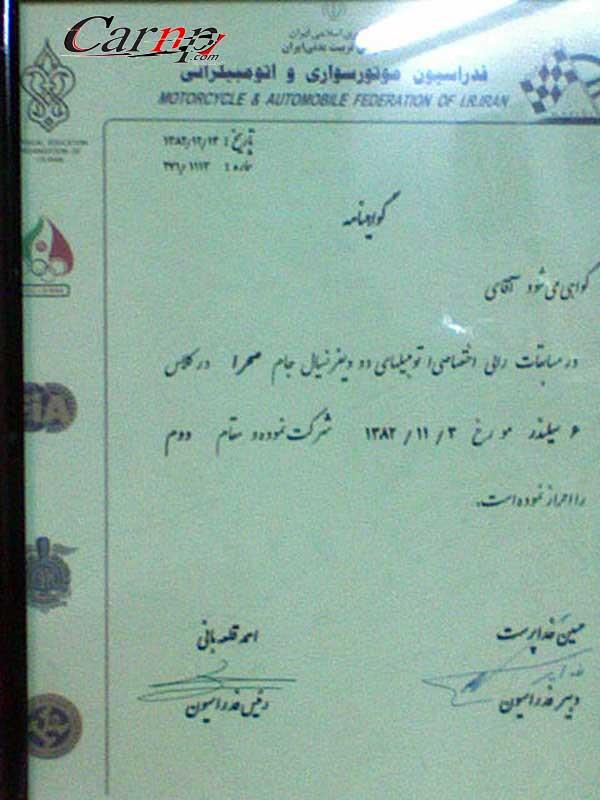 Carnp.com
ی اسلامی ایران
تربیت بدنی ایران
فدراسیون موتورسواری و اتومبیلرانی
MOTORCYCLE & AUTOMOBILE FEDERATION OF I.R.IRAN
تاریخ : ۱۳۸۲/۱۲/۱۳
شماره : ۲۷۶/۱۱۱۳
گواهینامه
گواهی می شود آقای
در مسابقات رالی اختصاصی اتومبیلهای دو دیفرنسیال جام صحرا در کلاس
۶ سیلندر مورخ ۱۳۸۲/۱۱/۳ شرکت نموده و مقام دوم
را احراز نموده است.
حسین خداپرست
دبیر فدراسیون
احمد قلعه بانی
رئیس فدراسیون